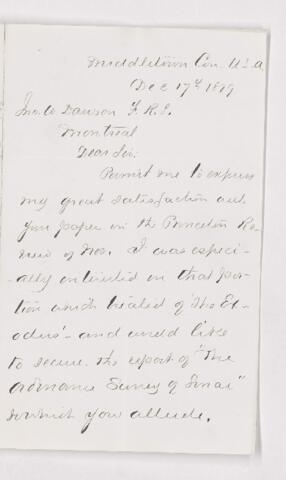 Middletown Con. U.S.A
Dec 17th 1879
Jno. W Dawson F.R.S.
Montreal
Dear Sir:
Permit me to express
my great satisfaction
your paper in the Princeton Re-
view of Nov. I was especi-
-ally interested in that por-
tion which treated of "The Ex-
odus"- and would like
to secure the report of "The
Ordnance Survey of Sinai"
to which you allude.